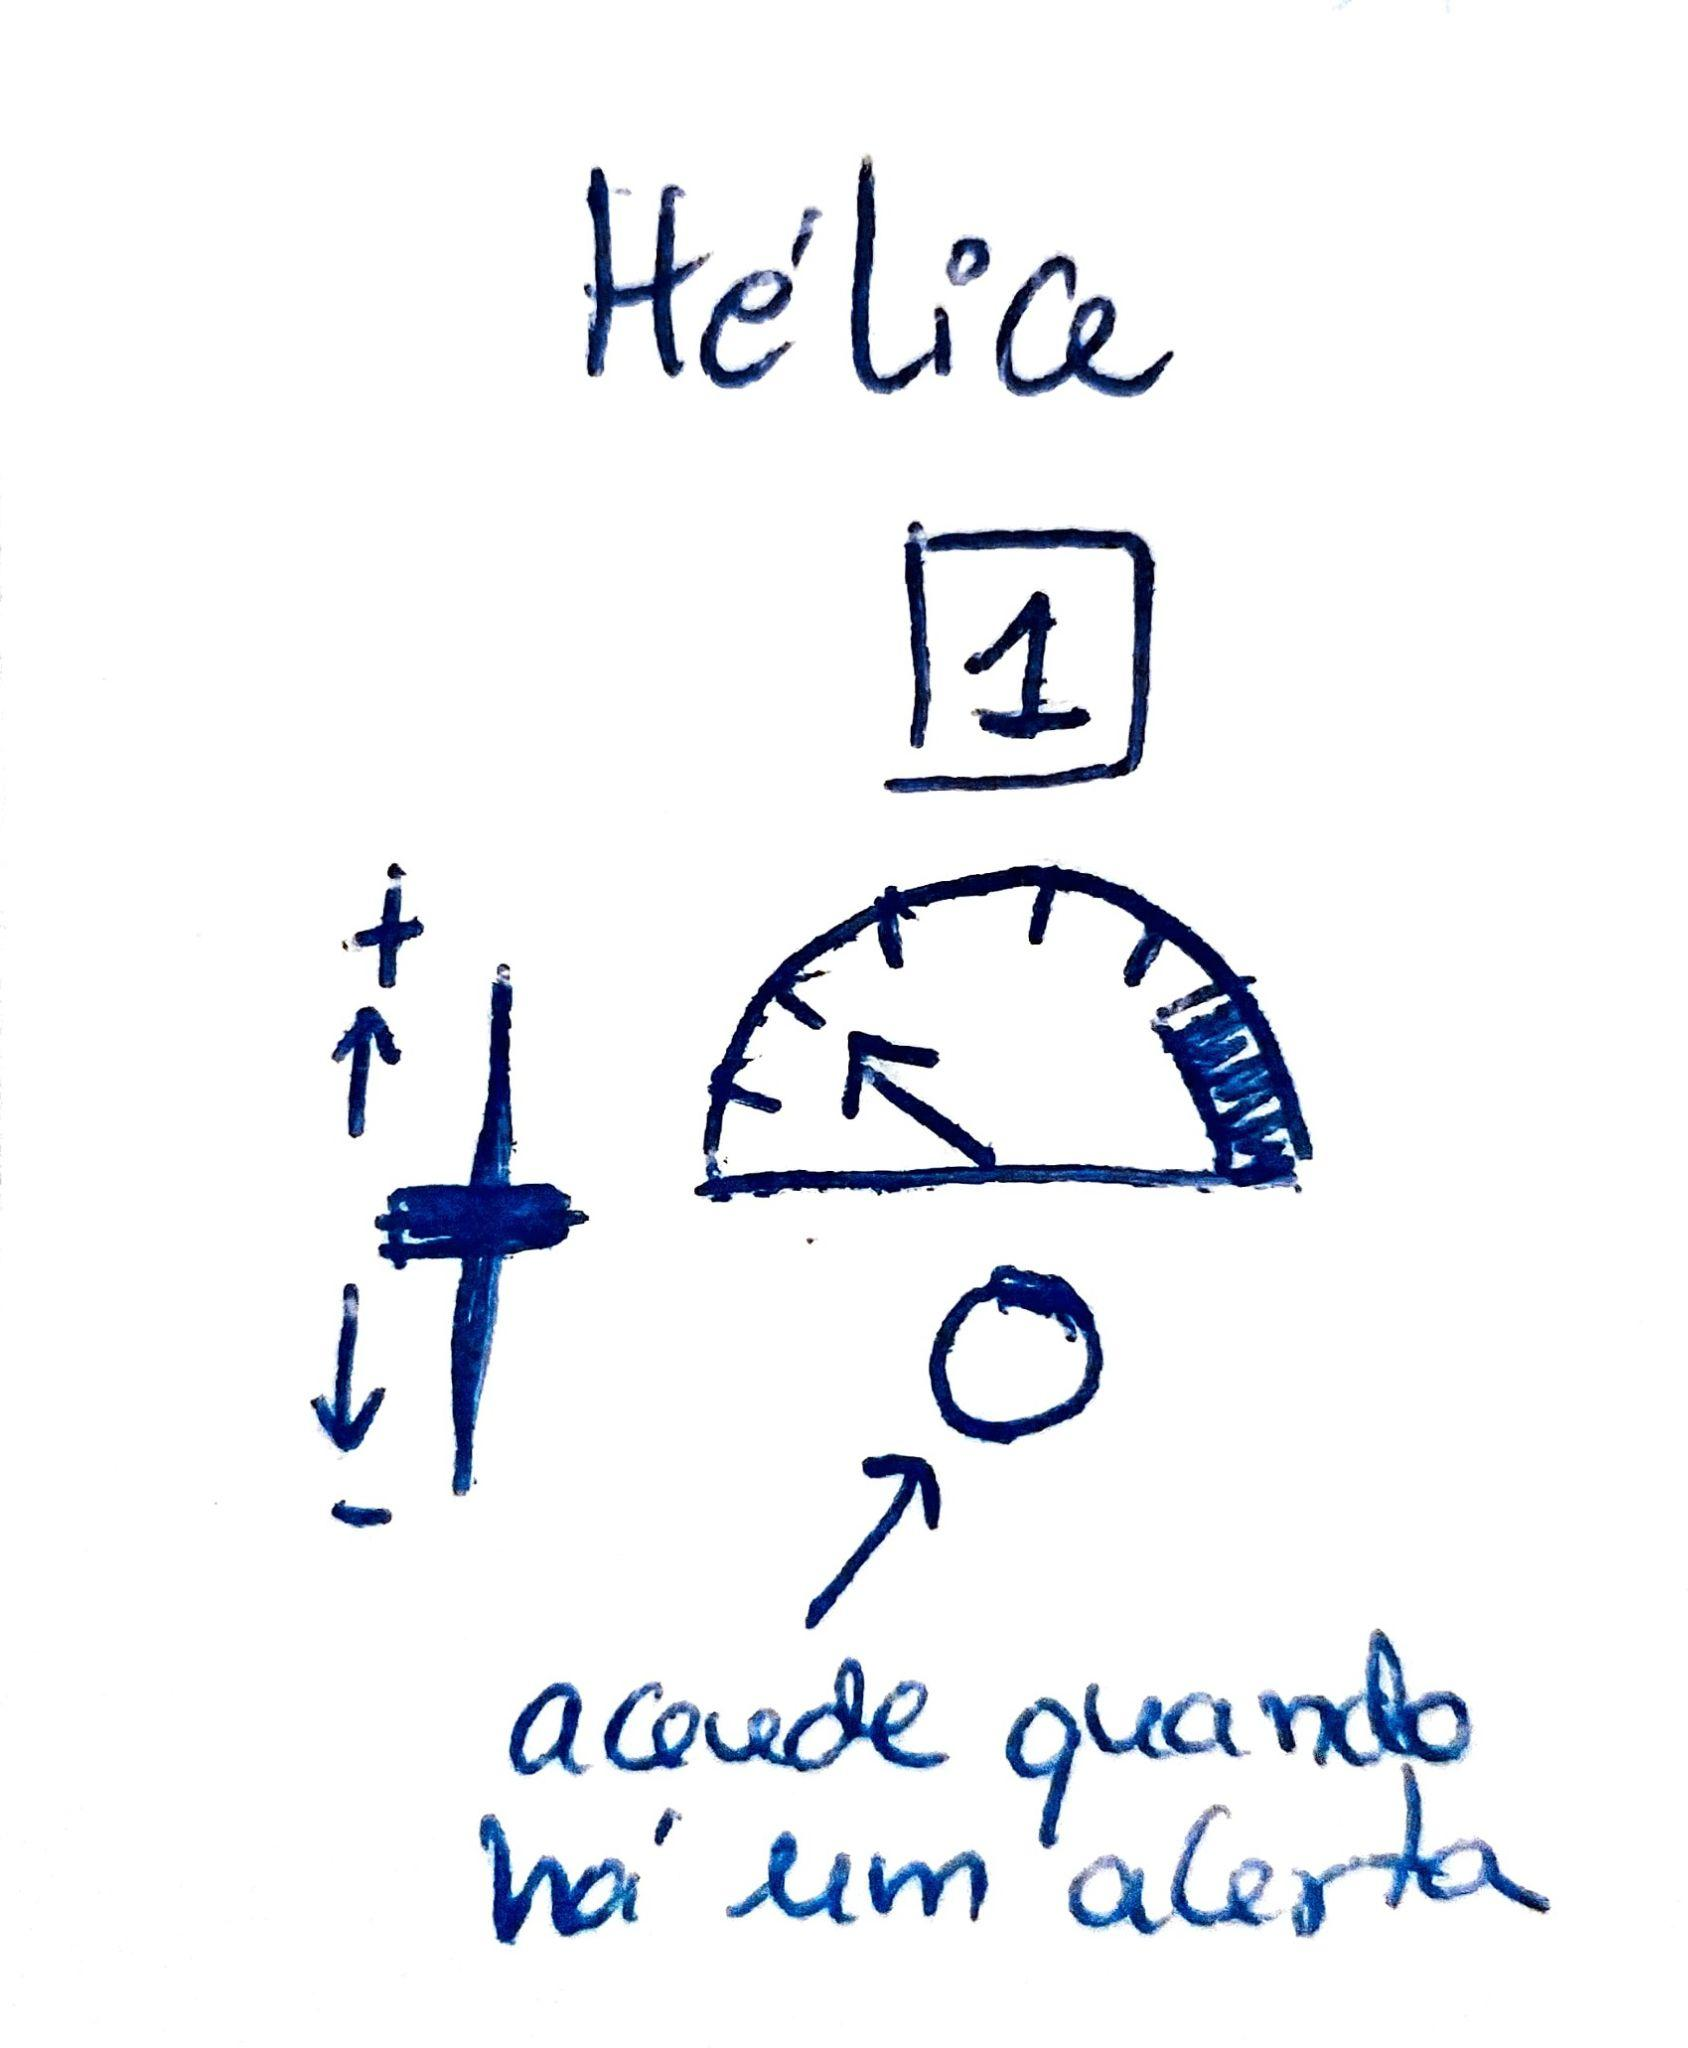 Hélice
1
+
-
acende quando
há um alerta